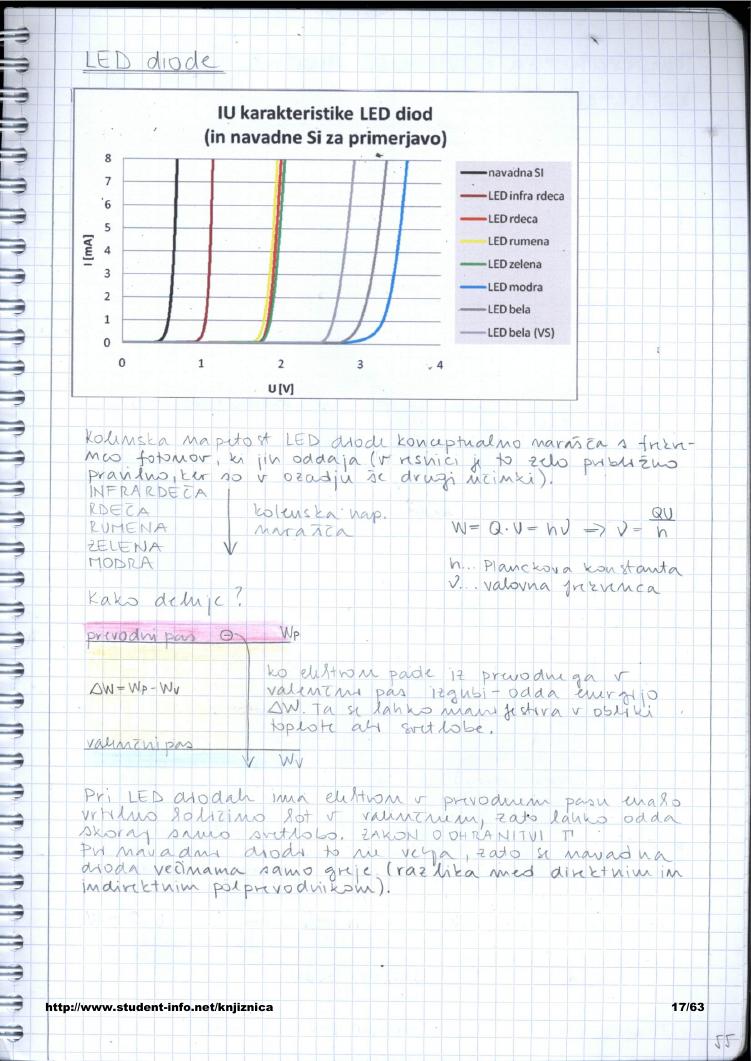 LED diode
IU karakteristike LED diod
(in navadne Si za primerjavo)
I [mA]
8
7
6
5
4
3
2
1
0
0 1 2 3 4
U [V]
navadna SI
LED infra rdeca
LED rdeca
LED rumena
LED zelena
LED modra
LED bela
LED bela (VS)
Kolenska napetost LED diode konceptualno narašča s frekven-
co fotonov, ki jih oddaja (v resnici je to zelo približno
pravilno, ker so v ozadju še drugi učinki).
INFRARDEČA
RDEČA
RUMENA
ZELENA
MODRA
kolenska nap.
narašča
W = Q·U = hν => ν = QU/h
h... Planckova konstanta
ν... valovna frekvenca
Kako deluje?
prevodni pas ⊖ Wp
ΔW = Wp - Wv
valenčni pas Wv
ko elektron pade iz prevodnega v
valenčni pas izgubi - odda energijo
ΔW. Ta se lahko manifestira v obliki
toplote ali svetlobe.
Pri LED diodah ima elektron v prevodnem pasu enako
vrtilno količino kot v valenčnem, zato lahko odda
skoraj samo svetlobo. ZAKON O OHRANITVI Γ
Pri navadni diodi to ne velja, zato se navadna
dioda večinama samo greje (razlika med direktnim in
indirektnim polprevodnikom).
http://www.student-info.net/knjiznica
17/63
55